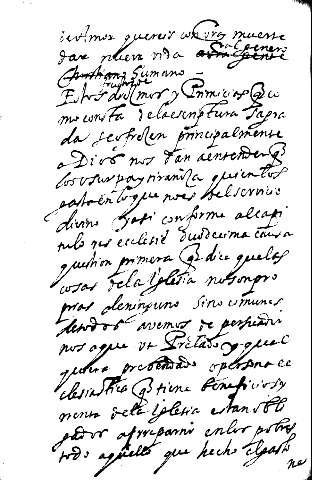 señor mor quereis con vra muerte
dar nueva vida al genero
humano –
Estos diesmos y Primicias Co
mo consta dela escriptura sagra
da se ofrezen principalmente
a Dios nos dan a entender q
los usurpa y tiraniza quien los
gasta en lo que no es del servicio
divino Y assi conforme al capi
tulo nes ecclesie duodecima causa
question primera q dice que las
cosas de la Iglesia no son pro
prias de ninguno sino comunes
de todos avemos de persuadir
nos a que un Prelado y qual
quiera prebendado o persona e
clesiastica q tiene beneficios y
renta de la Iglesia estan obli
gados a repartir en los pobres
todo aquello que hecho el gasto
ne